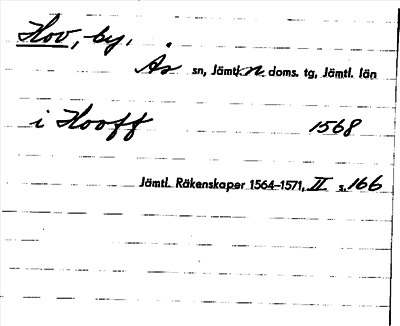 Hov, by.
Ås sn, Jämtl. n. doms. tg, Jämtl. län
i Hooff 1568
Jämtl. Räkenskaper 1564–1571, II s. 166